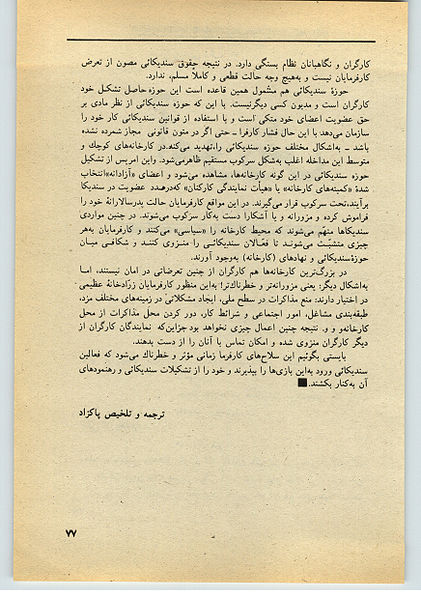 کارگران و نگاهبانان نظام بستگی دارد. در نتیجه حقوق سندیکائی مصون از تعرض
کارفرمایان نیست و به‌هیچ وجه حالت قطعی و کاملاً مسلم، ندارد.
حوزهٔ سندیکائی هم مشمول همین قاعده است این حوزه حاصل تشکیل خود
کارگران است و مدیون کسی دیگرنیست. با این که حوزه سندیکائی از نظر مادی بر
حق عضویت اعضای خود متکی است و با استفاده از قوانین سندیکائی کار خود را
سازمان می‌دهد با این حال فشار کارفرا ــ حتی اگر در متون قانونی مجاز شمرده نشده
باشد ــ به‌اشکال مختلف حوزه سندیکائی را، تهدید می‌کند. در کارخانه‌های کوچك و
متوسط این مداخله اغلب به‌شکل سرکوب مستقیم ظاهر می‌شود. واین امر پس از تشکیل
حوزه سندیکائی در این گونه کارخانه‌ها، مشاهده می‌شود و اعضای «آزادانه» انتخاب
شدهٔ «کمیته‌های کارخانه» یا «هیأت نمایندگی کارکنان» که درصدد عضویت در سندیکا
برآیند، تحت سرکوب قرار می‌گیرند. در این مواقع کارفرمایان حالت پدرسالارانهٔ خود را
فراموش کرده و مزورانه و یا آشکارا دست به‌کار سرکوب می‌شوند. در چنین مواردی
سندیکاها متهم می‌شوند که محیط کارخانه را «سیاسی» می‌کنند و کارفرمایان به‌هر
چیزی متشبث می‌شوند تا فعالان سندیکائی را منزوی کنند و شکافی میان
حوزهٔ سندیکائی و نهادهای (کارخانه) به‌وجود آورند.
در بزرگ‌ترین کارخانه‌ها هم کارگران از چنین تعرضاتی در امان نیستند، اما
به‌اشکال دیگر: یعنی مزورانه‌تر و خطرناك‌تر! به‌این منظور کارفرمایان زرادخانهٔ عظیمی
در اختیار دارند: منع مذاکرات در سطح ملی، ایجاد مشکلاتی در زمینه‌های مختلف مزد،
طبقه‌بندی مشاغل، امور اجتماعی و شرائط کار، دور کردن محل مذاکرات از محل
کارخانه و و. و. نتیجه چنین اعمال چیزی نخواهد بود جزاین‌که نمایندگان کارگران از
دیگر کارگران منزوی شده و امکان تماس با آنان را از دست بدهند.
بایستی بگوئیم این سلاح‌های کارفرما زمانی مؤثر و خطرناك می‌شود که فعالین
سندیکائی ورود به‌این بازی‌ها را بپذیرند و خود را از تشکیلات سندیکائی و رهنمودهای
آن به‌کنار بکشند.
ترجمه و تلخیص پاکزاد
۷۷